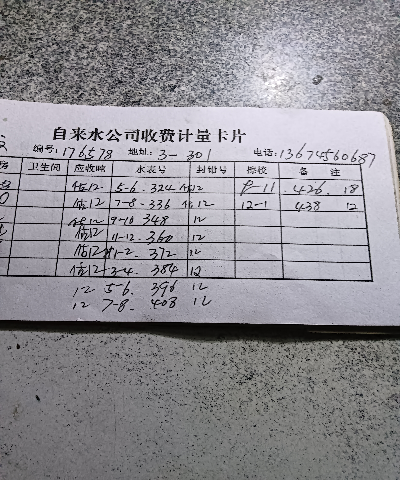 自来水公司收费计量卡片
编号:176578 地址:3-301 电话:13674560687
卫生间 应收吨 水表号 封铅号 检校 备注
估12 5-6. 324 估12 8-11 426. 18
估12 7-8. 336 估12 12-1 438 12
估12 9-10 348 12
估12 11-12. 360 12
估12 1-2. 372 12
估12 3-4. 384 12
12 5-6. 396 12
12 7-8. 408 12